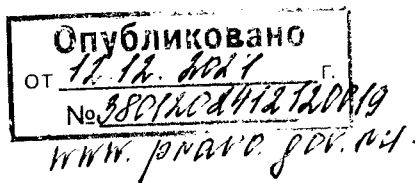 Опубликовано
от 12.12. 2024 г.
№ 3801202412120019
www. pravo. gov. ru.